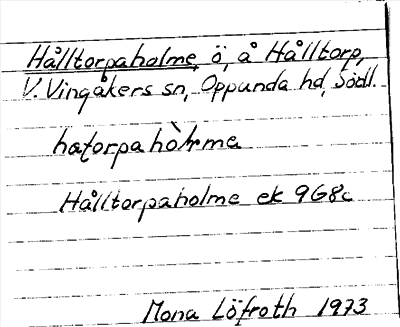 Hålltorpaholme, ö, å Hålltorp,
V. Vingåkers sn, Oppunda hd, Södl.
Hålltorpaholme ek 9G8c
Mona Löfroth 1973